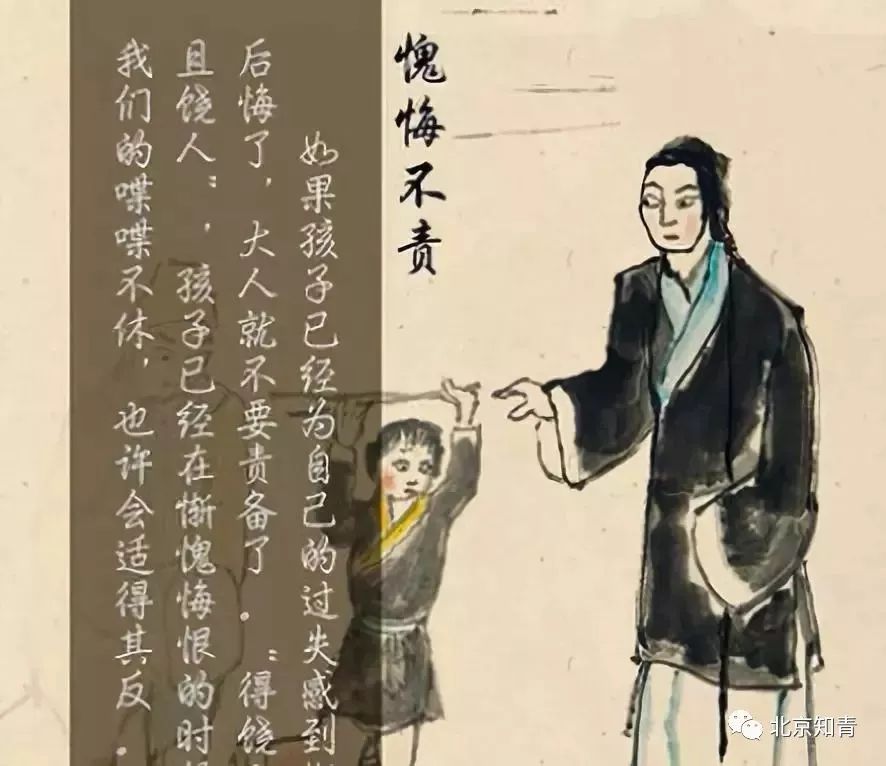 愧悔不责
如果孩子已经为自己的过失感到
后悔了，大人就不要贵备了．“得饶
且饶人”，孩子已经在惭愧悔恨的时
我们的喋喋不休，也许会适得其反．
北京知青